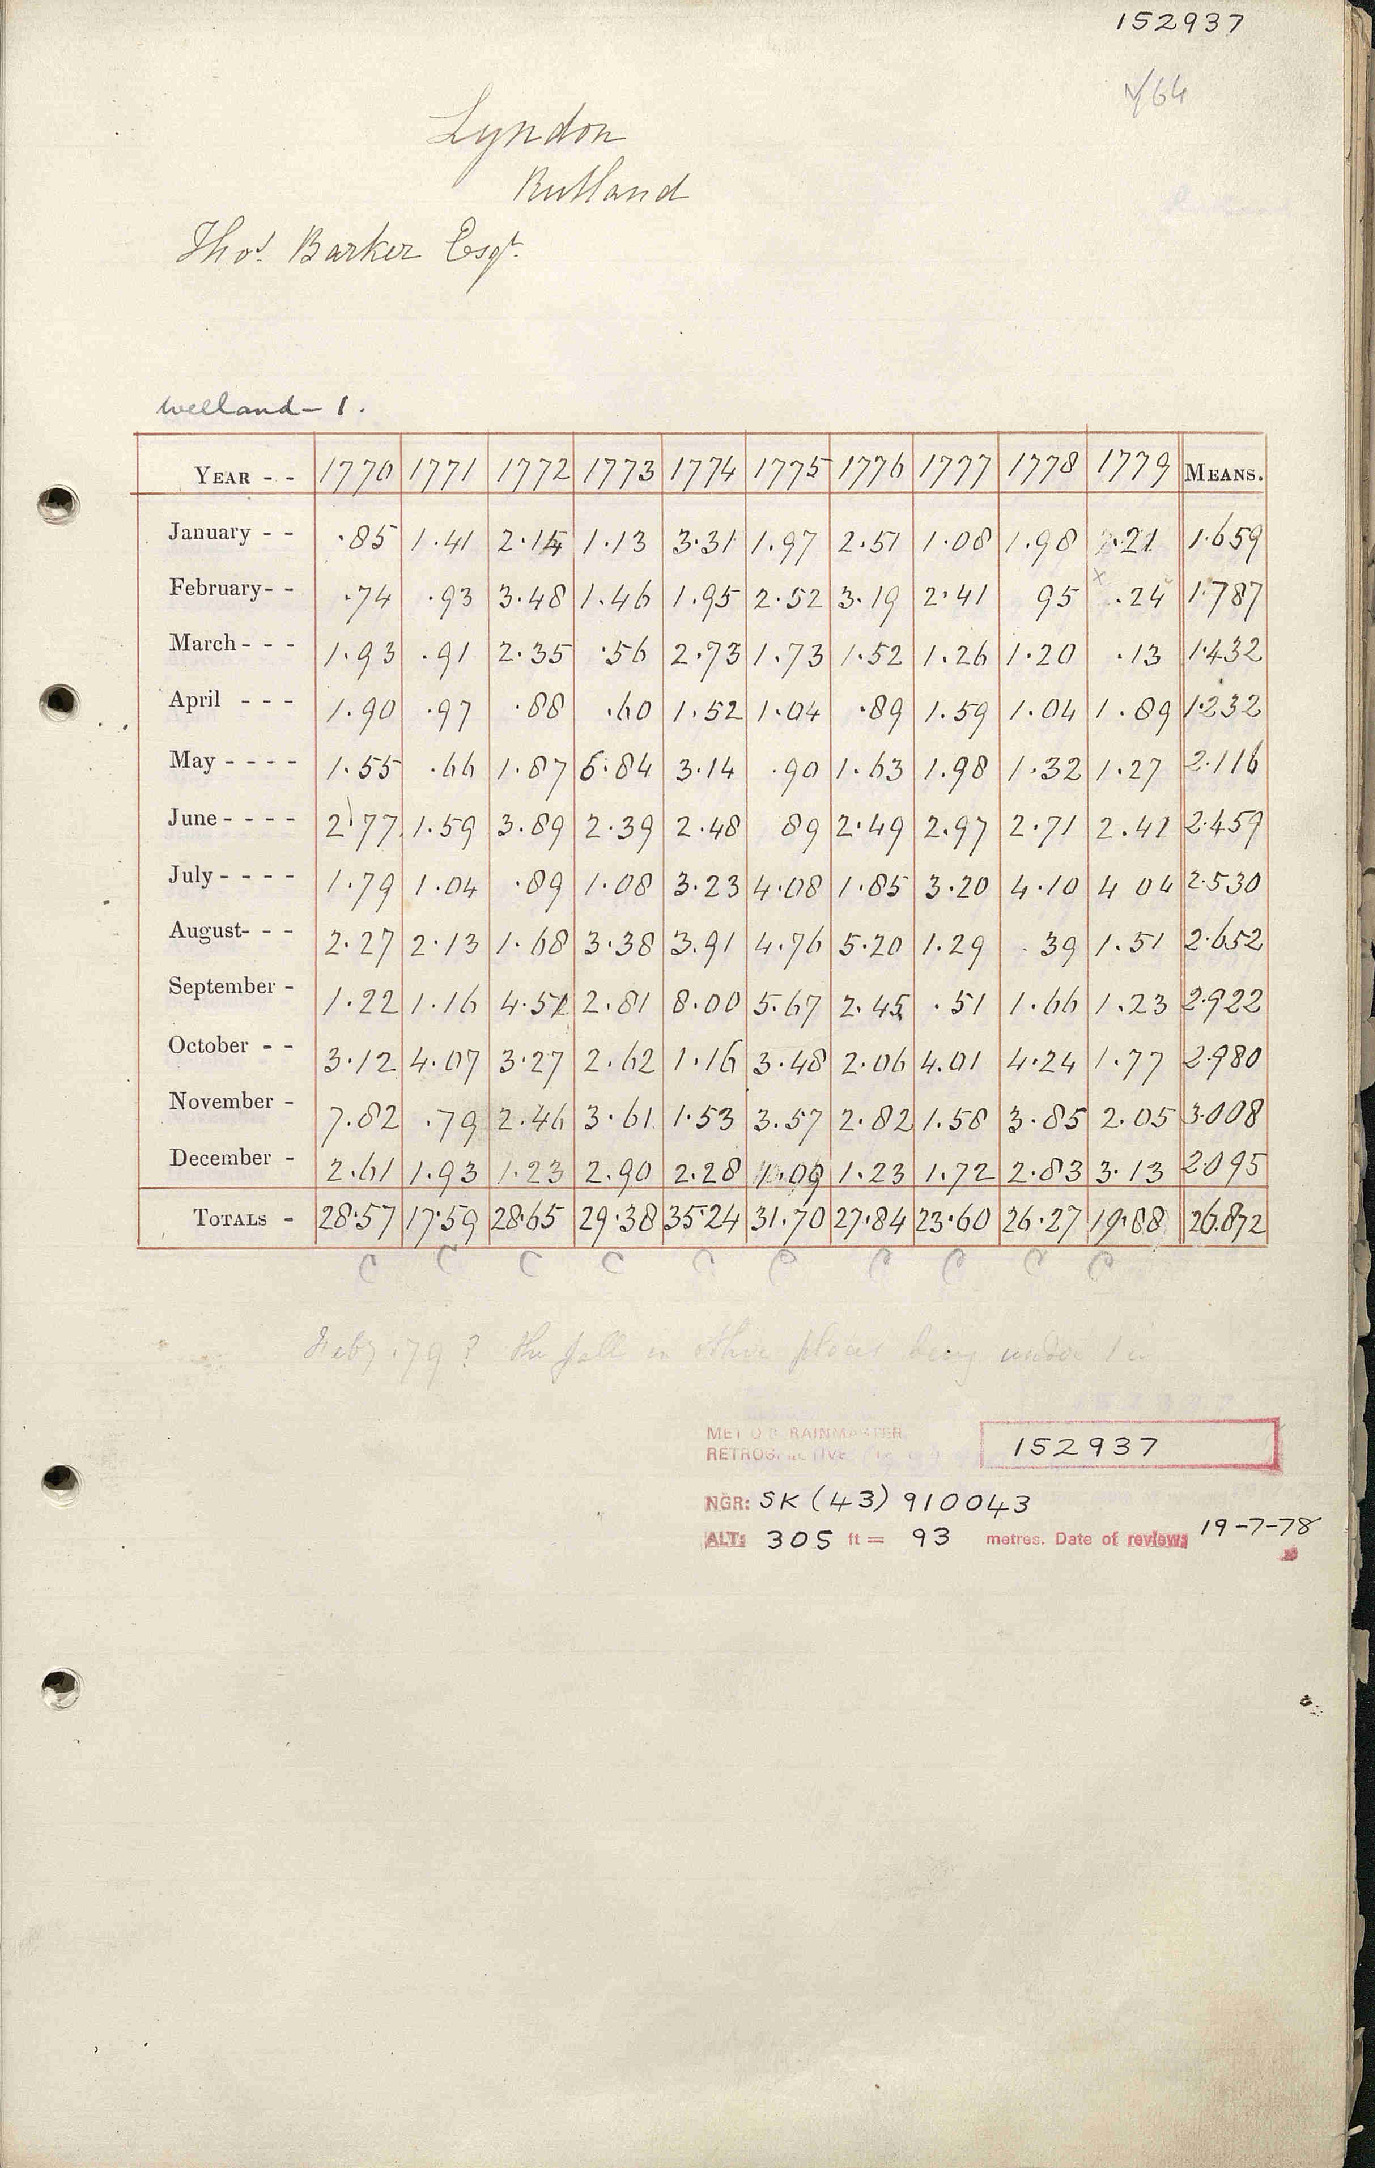 152937
√64
Lyndon
Rutland
Thos. Barker Esqr.
Welland - 1.
YEAR - - 1770 1771 1772 1773 1774 1775 1776 1777 1778 1779 MEANS.
January - - .85 1.41 2.14 1.13 3.31 1.97 2.51 1.08 1.98 .21 1.659
February - - .74 .93 3.48 1.46 1.95 2.52 3.19 2.41 95 .24 1.787
March - - - 1.93 .91 2.35 .56 2.73 1.73 1.52 1.26 1.20 .13 1.432
April - - - 1.90 .97 .88 .60 1.52 1.04 .89 1.59 1.04 1.89 1.232
May - - - - 1.55 .66 1.87 6.84 3.14 .90 1.63 1.98 1.32 1.27 2.116
June - - - - 2.77 1.59 3.89 2.39 2.48 89 2.49 2.97 2.71 2.41 2.459
July - - - - 1.79 1.04 .89 1.08 3.23 4.08 1.85 3.20 4.10 4 04 2.530
August - - - 2.27 2.13 1.68 3.38 3.91 4.76 5.20 1.29 .39 1.51 2.652
September - 1.22 1.16 4.51 2.81 8.00 5.67 2.45 .51 1.66 1.23 2.922
October - - 3.12 4.07 3.27 2.62 1.16 3.48 2.06 4.01 4.24 1.77 2.980
November - 7.82 .79 2.46 3.61 1.53 3.57 2.82 1.58 3.85 2.05 3.008
December - 2.61 1.93 1.23 2.90 2.28 1.09 1.23 1.72 2.83 3.13 2.095
TOTALS - 28.57 17.59 28.65 29.38 35.24 31.70 27.84 23.60 26.27 19.88 26.872
C C C C C C C C C C
Feby .79 ? the fall in other places being under 1 in
MET O 8 RAINMASTER
RETROSPECTIVE 152937
NGR: SK (43) 910043
ALT: 305 ft = 93 metres. Date of review: 19-7-78